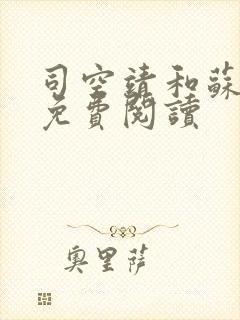 司空靖和蘇
免費閱讀
奧里薩